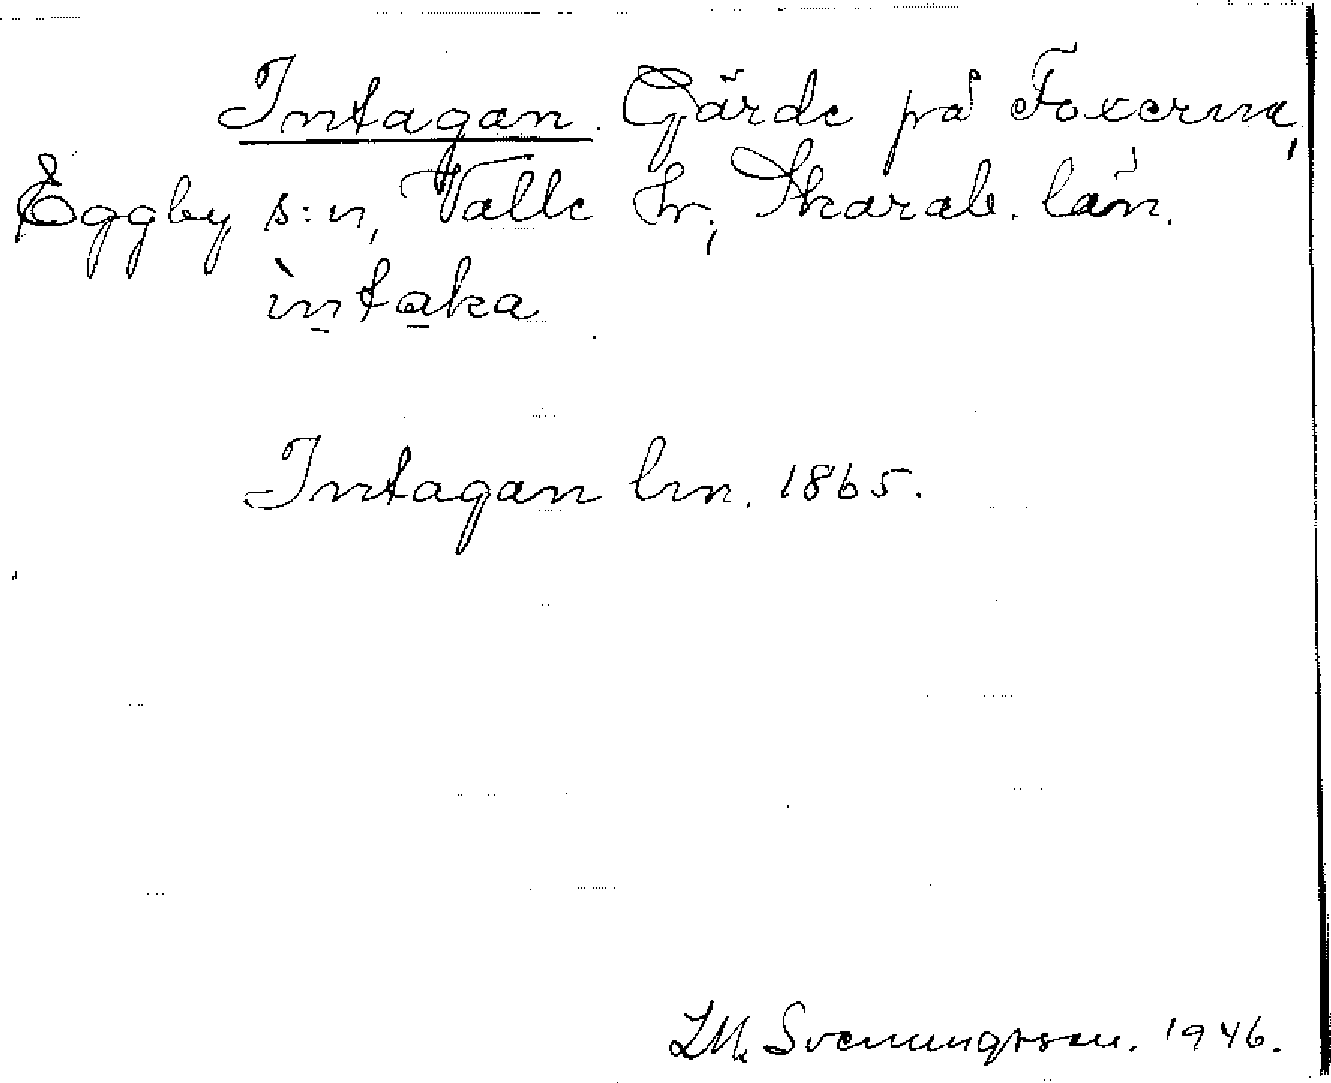 Intagan. Gärde på Foxerna,
Eggby s:n, Valle hr, Skarab. län.
ìntaka
Intagan hm. 1865.
I.M. Svenungsson. 1946.